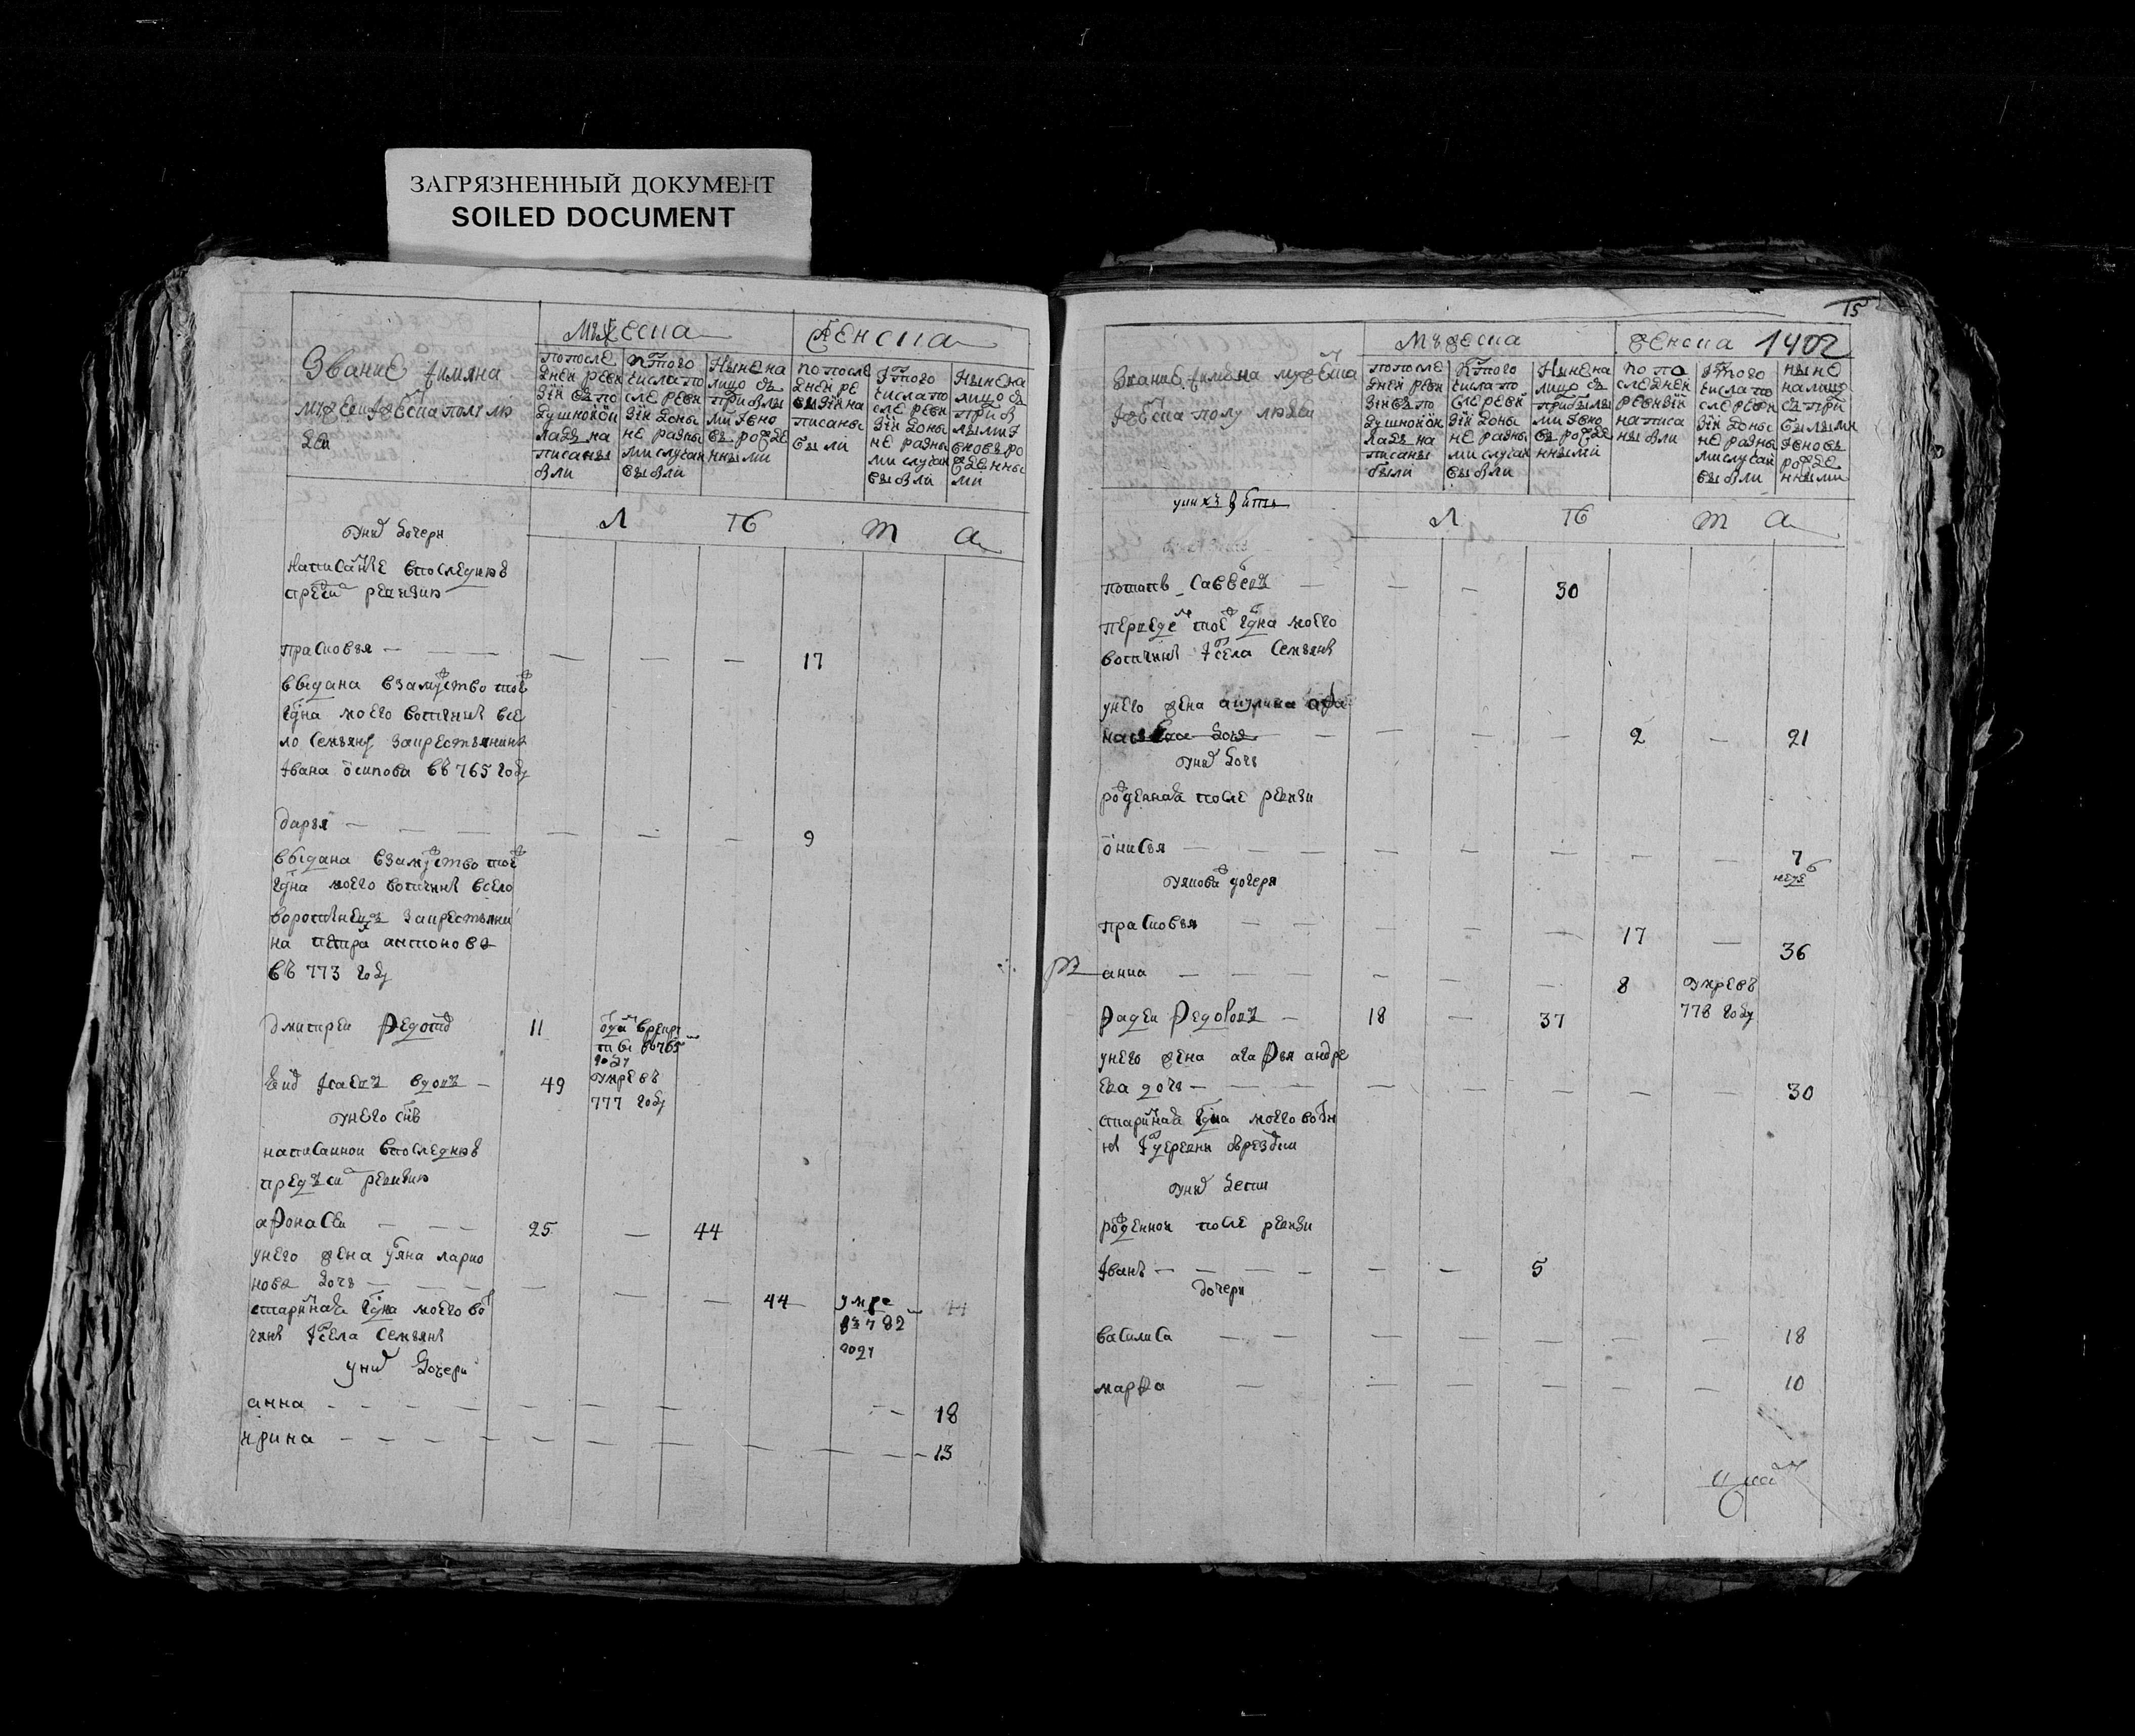 ЗАГРЯЗНЕННЫЙ ДОКУМЕНТ
SOILED DOCUMENT
мужеска
женска
Звание имяна
мужеска и женска полу лю
дей
по после
дней реви
зии въ по
душной ок
ладъ на
писаны
были
ис того
числа по
сле реви
зии доны
не разны
ми случаи
выбыли
Ныне на
лицо съ
прибылы
ми и вно
въ рожде
нными
по после
дней ре
визии на
писаны
были
ис того
числа по
сле реви
зии доны
не разны
ми случаи
выбыли
Ныне на
лицо съ
приб
лыми и
вновь ро
жденны
ми
Л Т6 Т а
У них дочери
написанные в последнюю
пред сим ревизию
прасковья — — — — — — 17
выдана в замужство тое ж
гдна моего вотчины в се
ло Семьяны за крестьянина
Ивана Осипова въ 765 году
дарья — — — — — — 9
выдана в замужство тое ж
гдна моего вотчины в село
воротынецъ за крестьяни
на петра антонова
въ 773 году
Дмитреи Федотов 11 одан в рекру
ты въ 765
году
Исаевъ вдовъ — 49 умре въ
777 году
у него снъ
написанной в последнюю
пред сим ревизию
афонасеи — — — 25 — 44
у него жена ульяна ларио
нова дочь — — — — — — — 44 умре
въ 782
году 44
старинная гдна моего вот
чины села семьяны
у них дочери
анна — — — — — — — — — — 18
ирина — — — — — — — — — — — 13
15
мужеска
женска 1402
Звание имена мужеска
и женска полу людей
по после
дней реви
зии въ по
душной ок
ладъ на
писаны
были
ис того
числа по
сле реви
зии доны
не разны
ми случаи
выбыли
Ныне на
лицо съ
прибылы
ми и вно
въ рожде
нными
по по
следней
ревизии
написа
ны были
ис того
числа по
сле реви
зии доны
не разны
ми случаи
выбыли
ныне
на лицо
съ при
былыми
и вновь
рожде
нными
у них дети
Л Т6 Т а
потапъ Савельевъ — — — 30
переведен тое ж гдна моего
вотчины ис села Семьяны
у него жена акулина афа
насьева дочь — — — — 2 — 21
у них дочь
рожденная после ревизи
онисья — — — — — — 7
недель
у яковa дочери
прасковья — — — — — 17 — 36
анна — — — — — — 8 умре въ
778 году
Фадеи Федоровъ — 18 — 37
у него жена агафья андре
ева дочь — — — — — — — — 30
старинная гдна моего вотчи
ны из деревни
у них дети
рожденнои после ревизи
Иванъ — — — — — — 5
дочери
василиса — — — — — — — 18
марфа — — — — — — 10